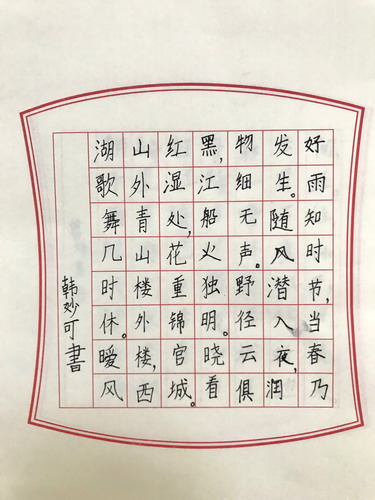 好雨知时节,当春乃
发生。随风潜入夜,润
物细无声。野径云俱
黑,江船火独明。晓看
红湿处,花重锦官城。
山外青山楼外楼,西
湖歌舞几时休。暧风
韩妙可書